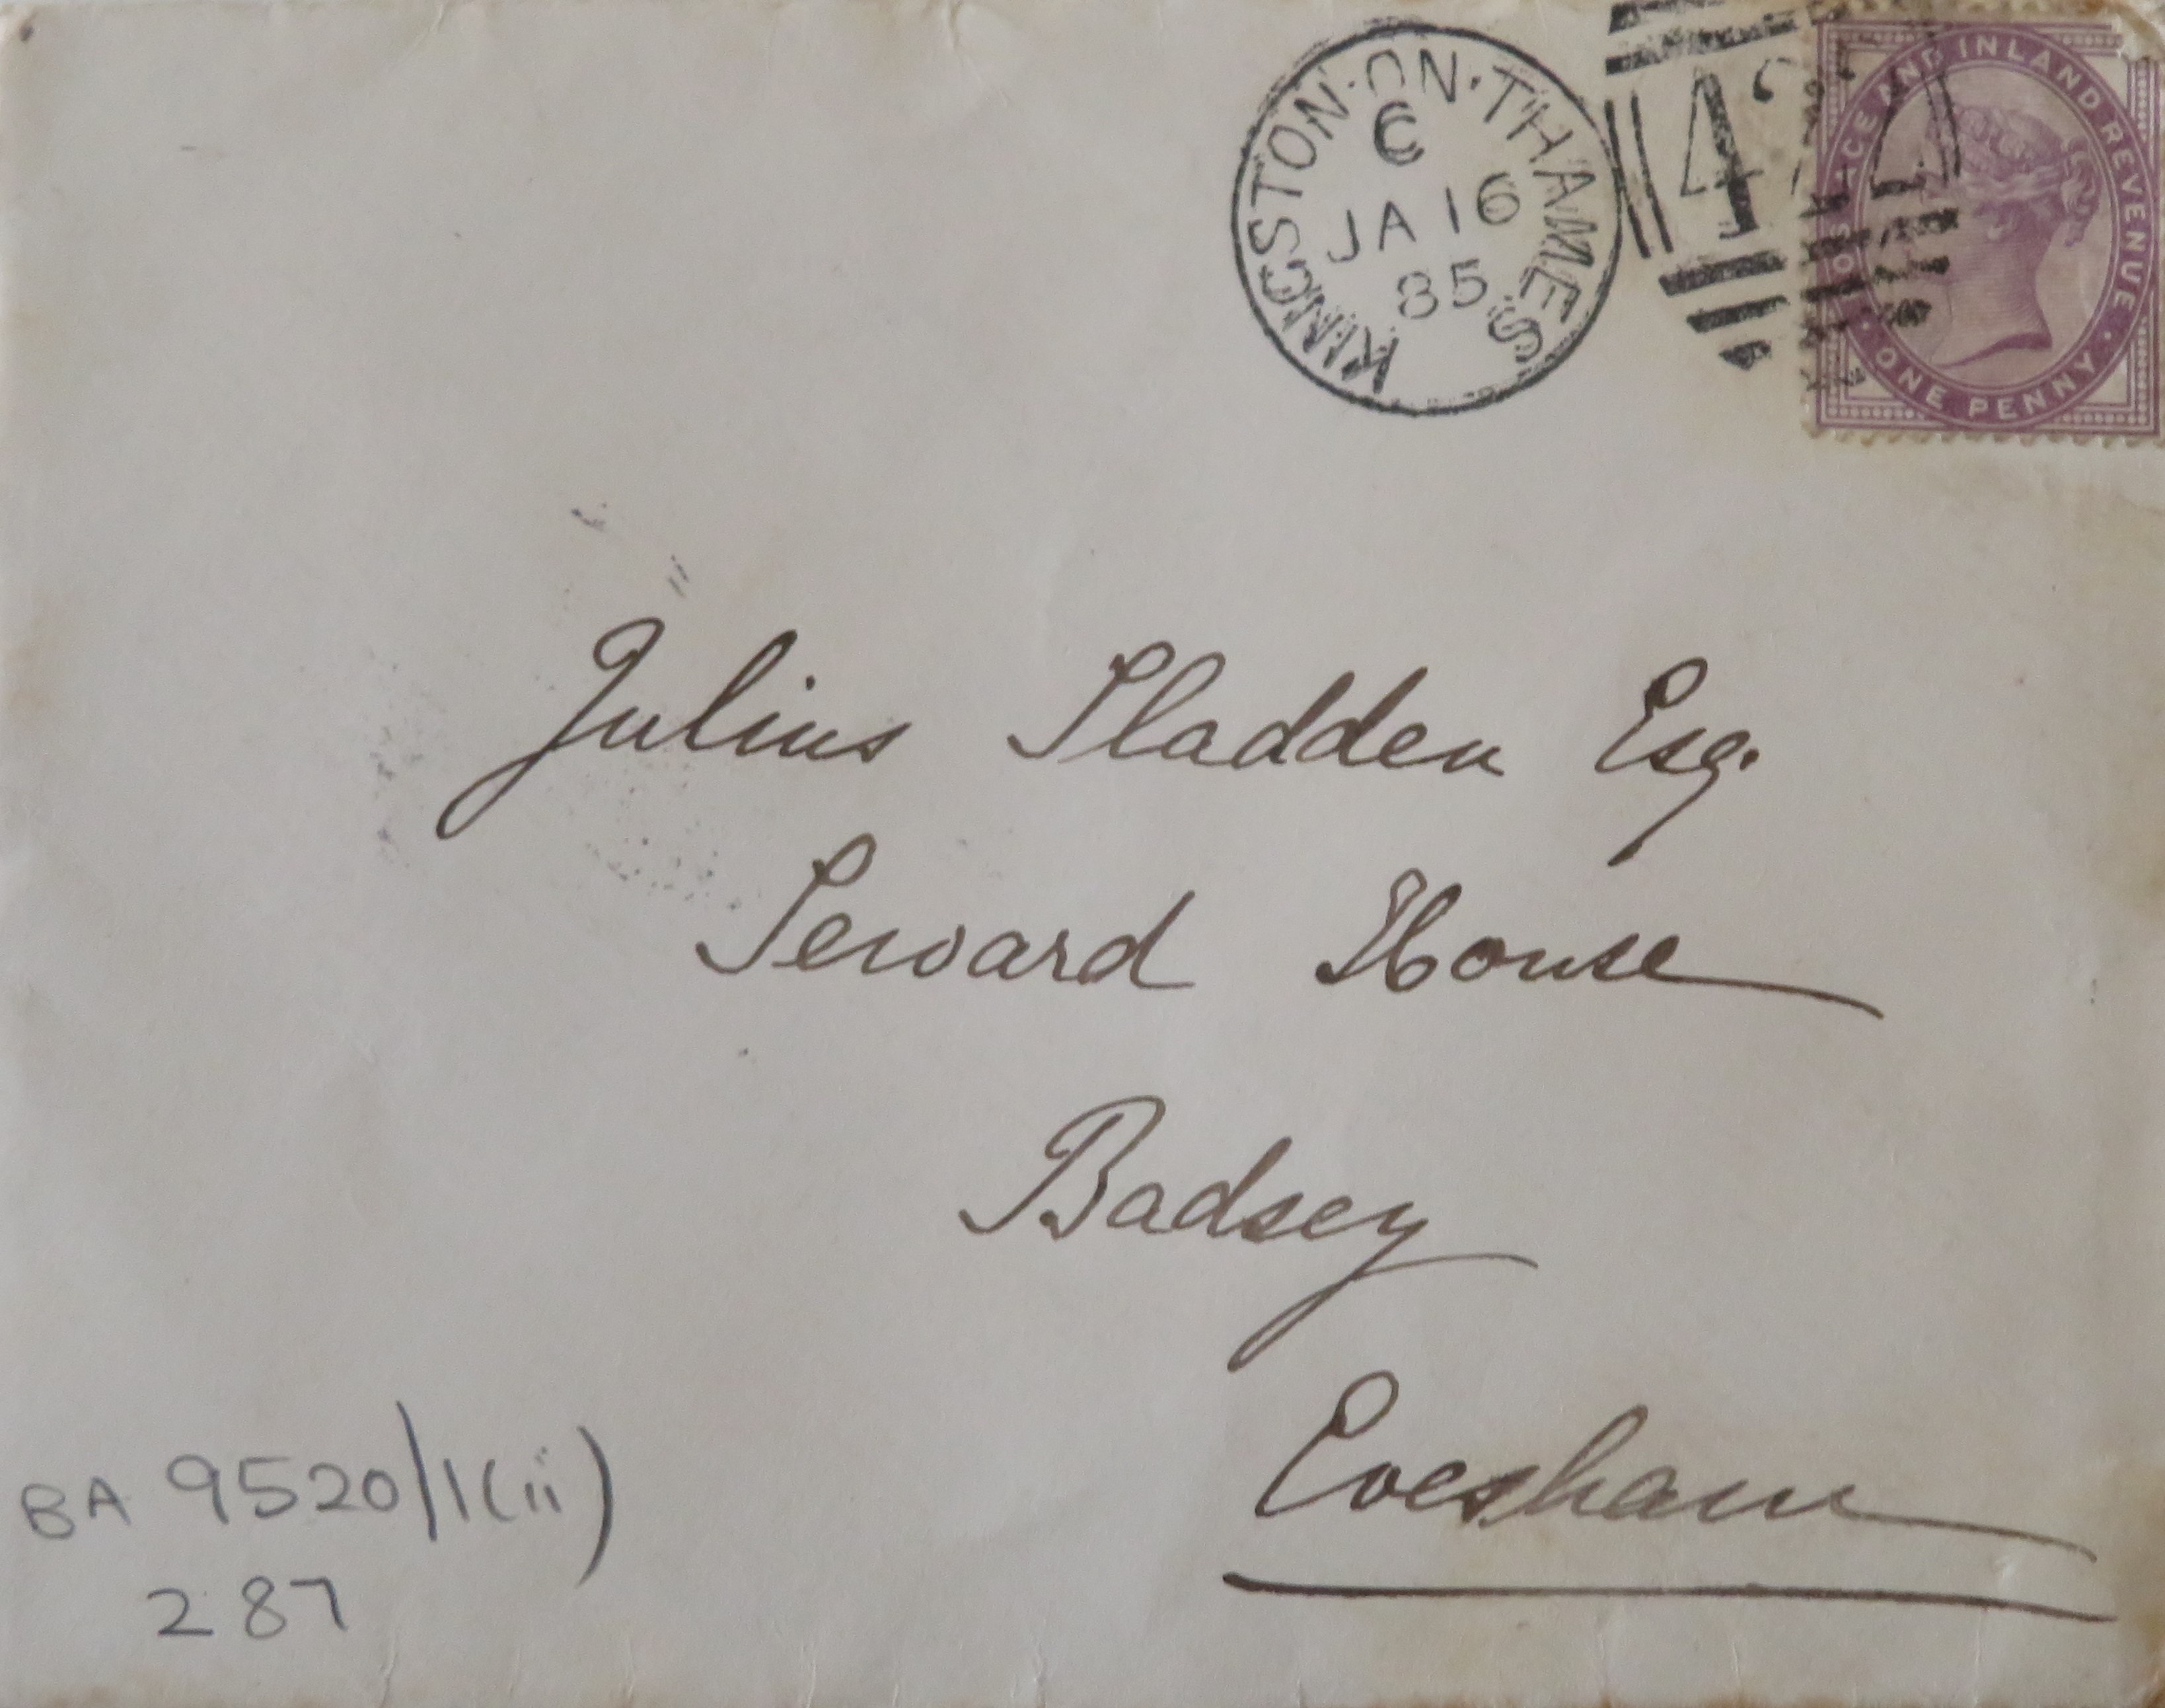 KINGSTON·ON·THAMES
C
JA 16
85
POSTAGE AND INLAND REVENUE
ONE PENNY
Julius Sladden Esq.
Seward House
Badsey
Evesham
BA 9520/1(ii)
287